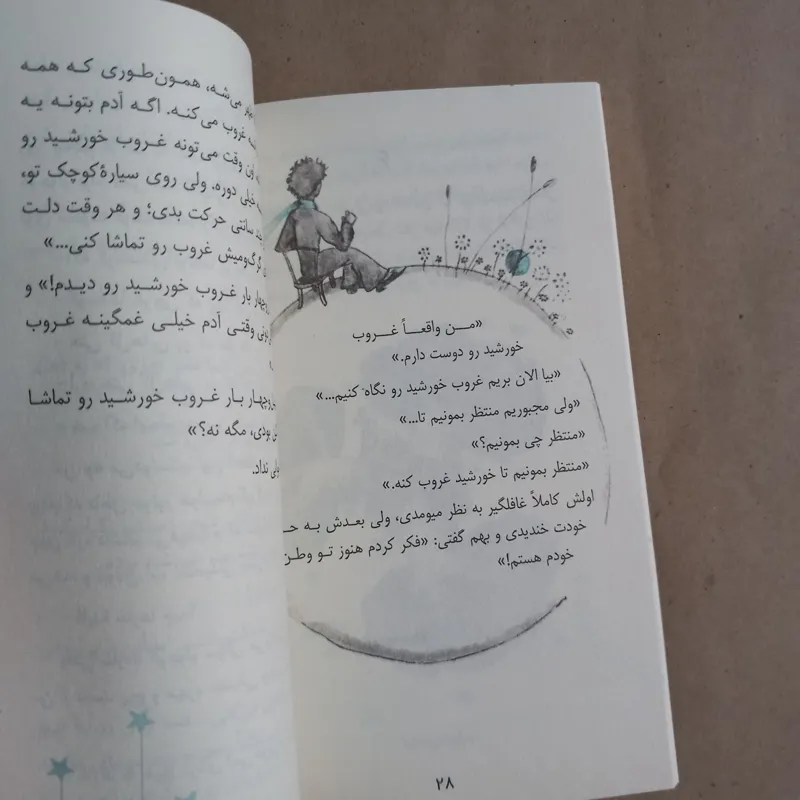 «من واقعاً غروب
خورشید رو دوست دارم.»
«بیا الان بریم غروب خورشید رو نگاه کنیم...»
«ولی مجبوریم منتظر بمونیم تا...»
«منتظر چی بمونیم؟»
«منتظر بمونیم تا خورشید غروب کنه.»
اولش کاملاً غافلگیر به نظر میومدی، ولی بعدش به
خودت خندیدی و بهم گفتی: «فکر کردم هنوز تو وطن
خودم هستم!»
۲۸
می‌شه، همون‌طوری که همه
غروب می‌کنه. اگه آدم بتونه یه
اون وقت می‌تونه غروب خورشید رو
خیلی دوره. ولی روی سیارهٔ کوچک تو،
سانتی حرکت بدی؛ و هر وقت دلت
گرگ‌ومیش غروب رو تماشا کنی...»
بار غروب خورشید رو دیدم!» و
وقتی آدم خیلی غمگینه غروب
بار غروب خورشید رو تماشا
بودی، مگه نه؟»
نداد.